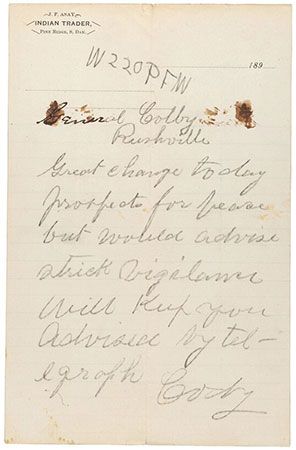 J. F. ASAY,
INDIAN TRADER,
PINE RIDGE, S. DAK.
189
W 220 P M
General Colby
Rushville
Great change today
prospects for peace
but would advise
strick vigilance
will keep you
advised by tel-
egraph